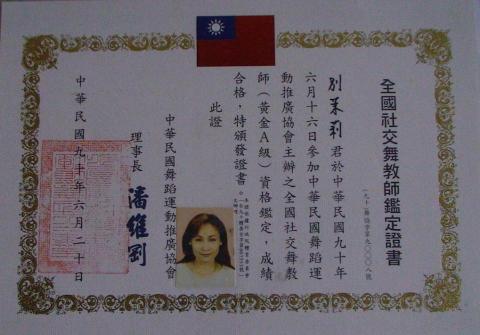 全國社交舞教師鑑定證書
別茉莉 君於中華民國九十年
六月十六日參加中華民國舞蹈運
動推廣協會主辦之全國社交舞教
師(黃金A級)資格鑑定,成績
合格,特頒發證書。
此證
中華民國舞蹈運動推廣協會
理事長 潘維剛
中華民國九十年六月二十日